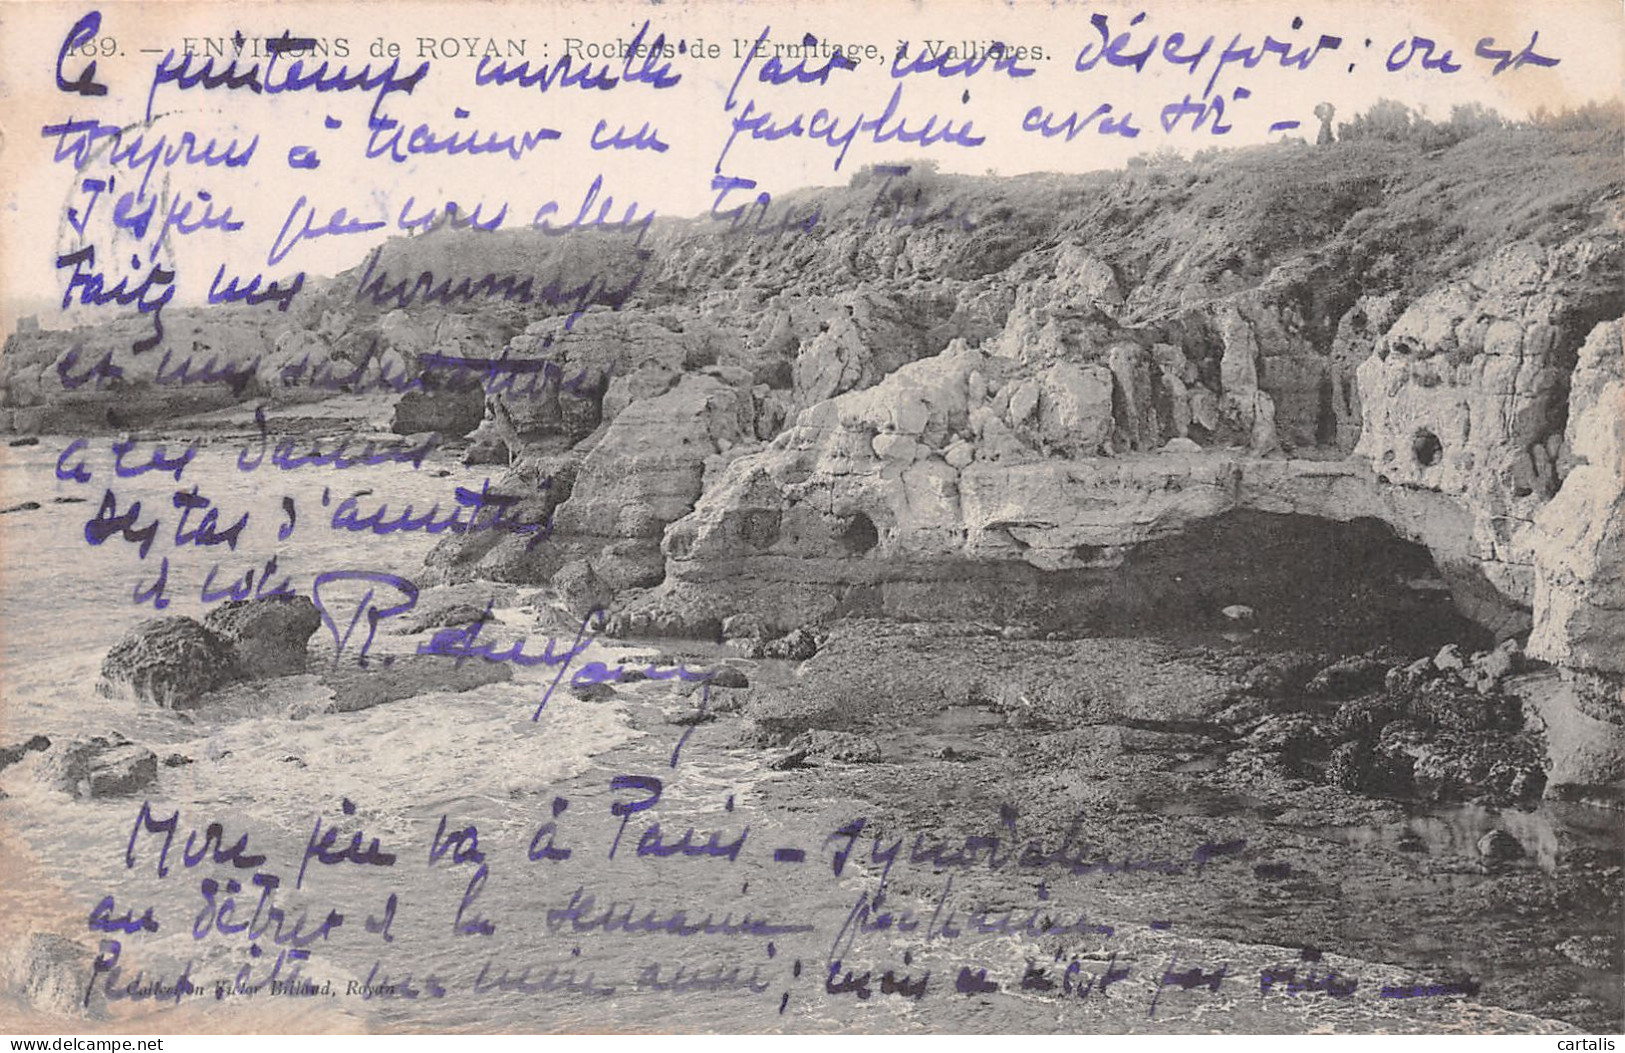 169. — ENVIRONS de ROYAN : Rochers de l'Ermitage, à Vallières.
Ce printemps mouillé fait mon désespoir : on est
toujours à traîner un parapluie avec soi —
J'espère que vous allez tous bien
Faites mes hommages
et mes salutations
à ces dames
des tas d'amitiés
à vous
R.
Mon père va à Paris — synodalement —
au début de la semaine prochaine —
Peut-être moi aussi ; mais ce n'est pas sûr
Collection Victor Billaud, Royan
cartalis